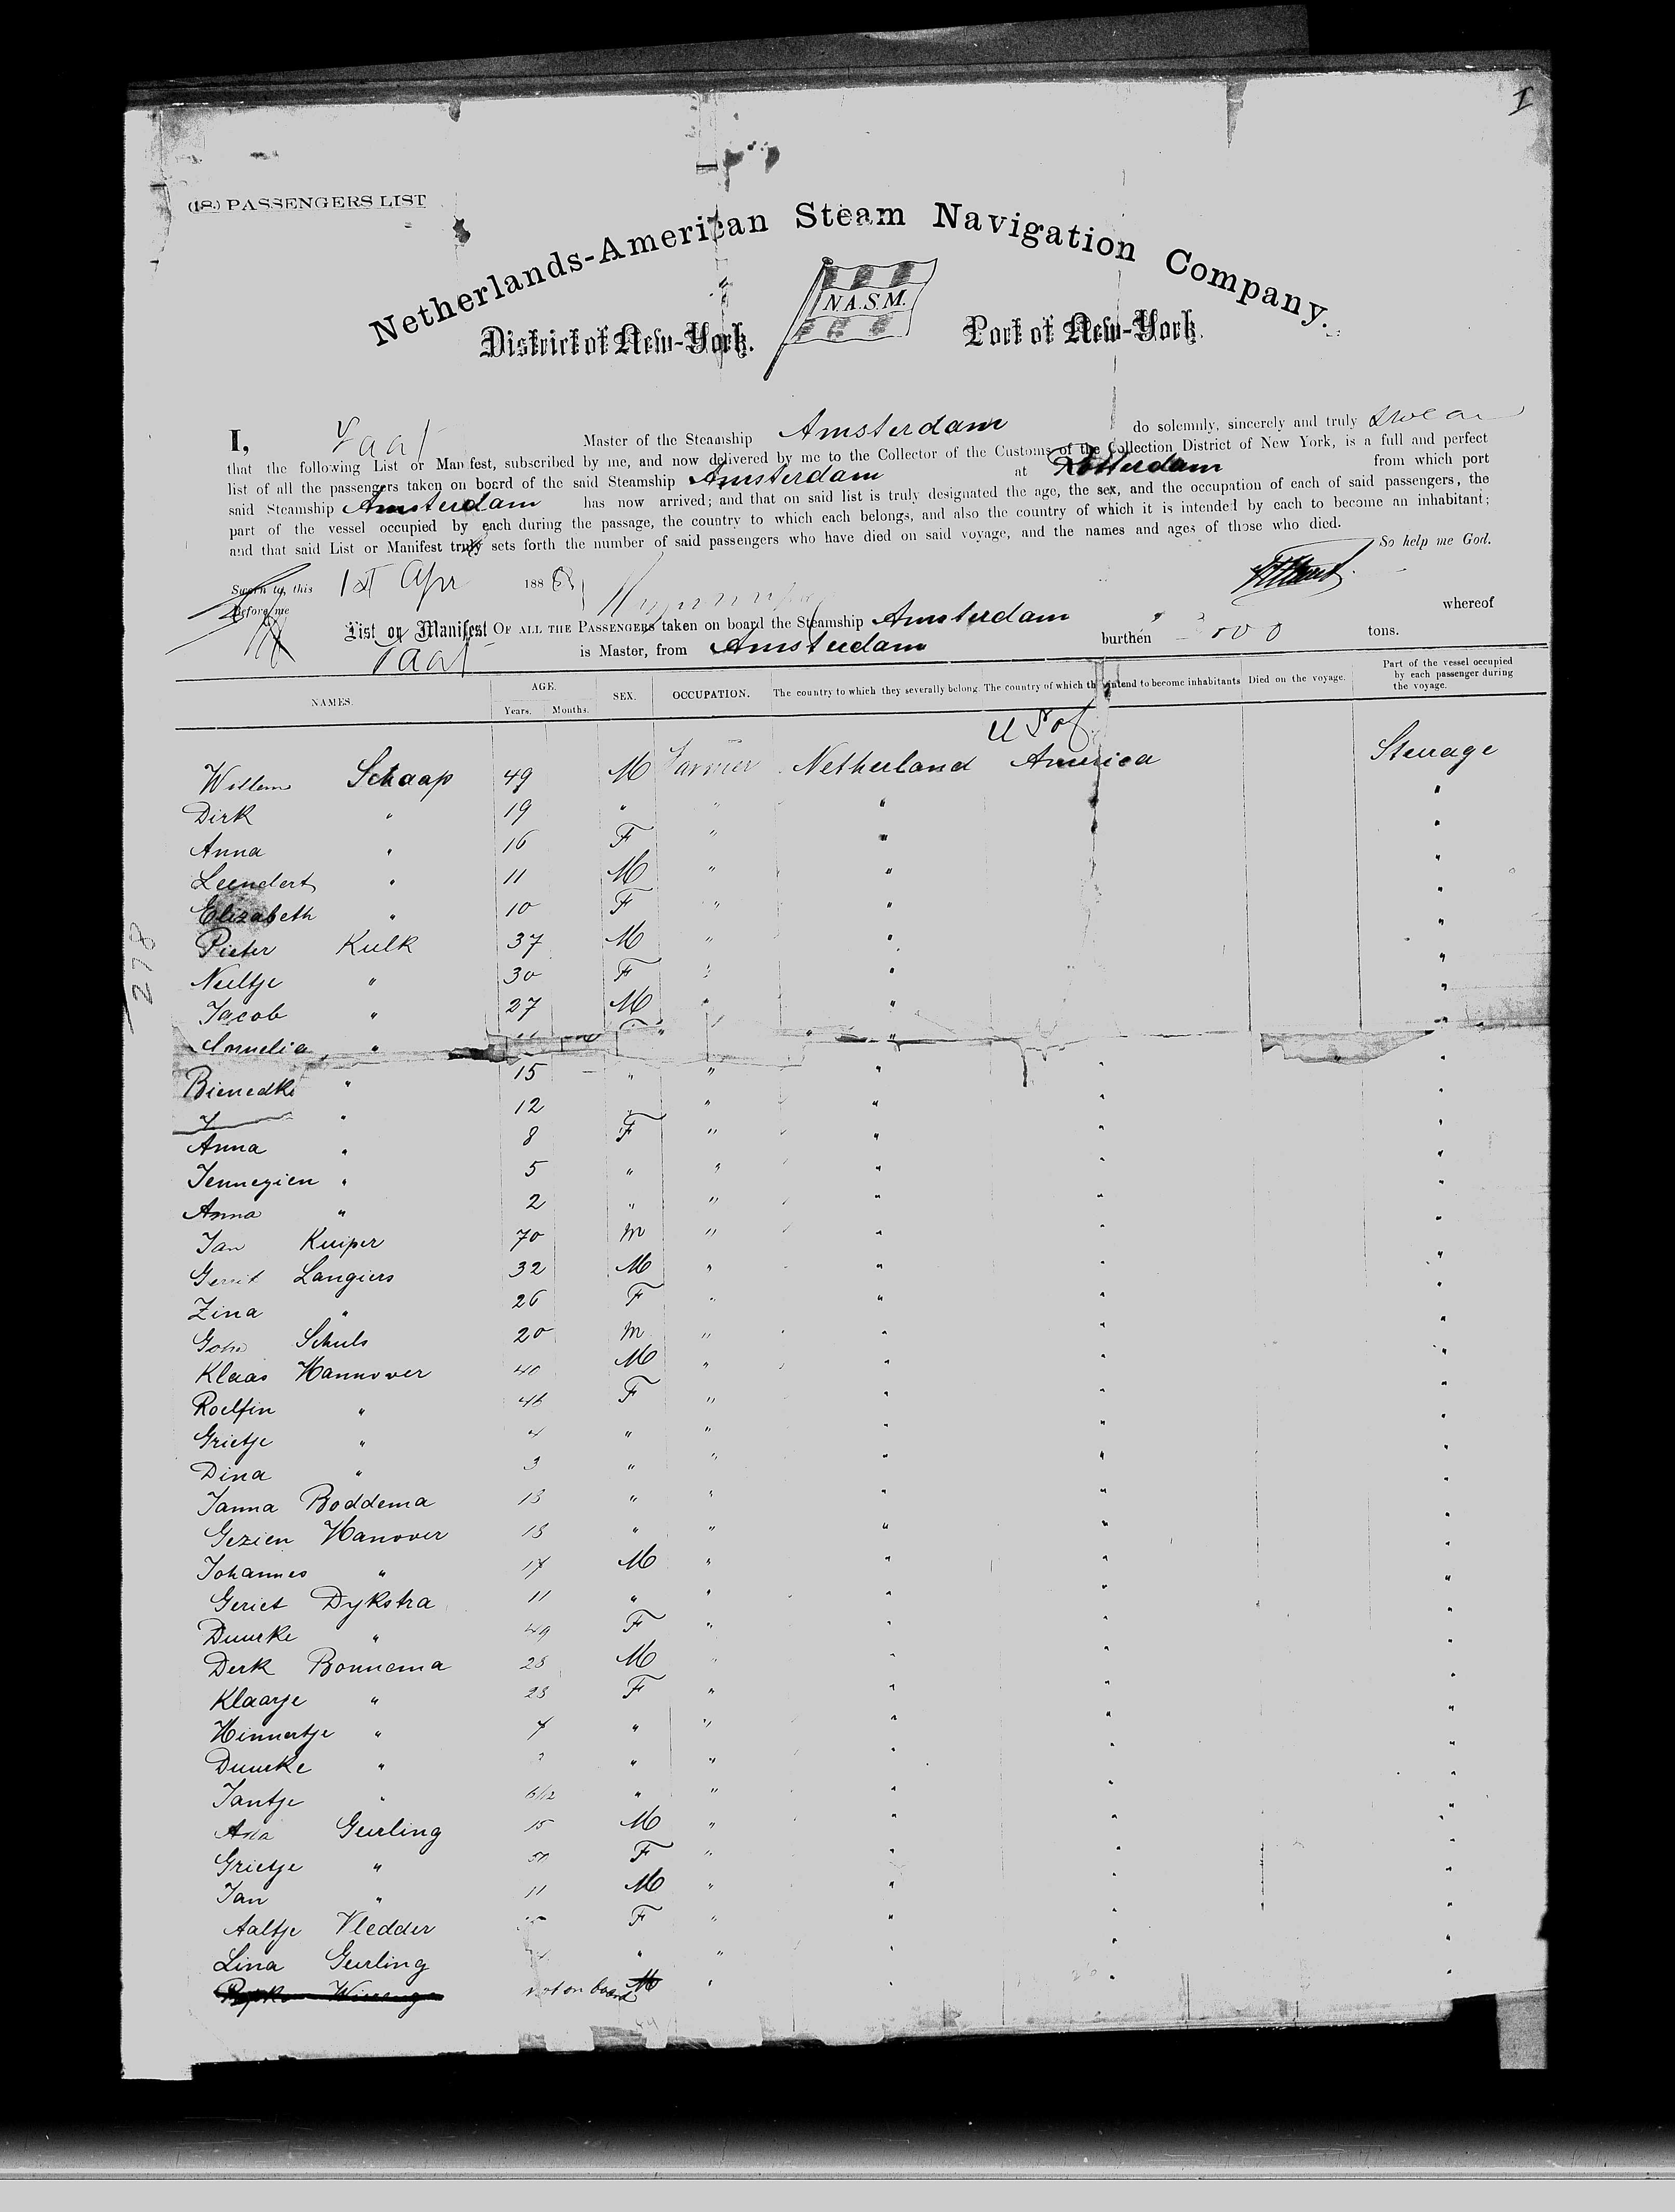 I
(18.) PASSENGERS LIST
Netherlands-American Steam Navigation Company.
N.A.S.M.
District of New-York. Port of New-York.
I, Taat Master of the Steamship Amsterdam do solemnly, sincerely and truly swear
that the following List or Manifest, subscribed by me, and now delivered by me to the Collector of the Customs of the Collection District of New York, is a full and perfect
list of all the passengers taken on board of the said Steamship Amsterdam at Rotterdam from which port
said Steamship Amsterdam has now arrived; and that on said list is truly designated the age, the sex, and the occupation of each of said passengers, the
part of the vessel occupied by each during the passage, the country to which each belongs, and also the country of which it is intended by each to become an inhabitant;
and that said List or Manifest truly sets forth the number of said passengers who have died on said voyage, and the names and ages of those who died.
So help me God.
Sworn to, this 1st Apr 188
Before me
List or Manifest OF ALL THE PASSENGERS taken on board the Steamship Amsterdam whereof
Taat is Master, from Amsterdam burthen tons.
NAMES. AGE. Years. Months. SEX. OCCUPATION. The country to which they severally belong. The country of which they intend to become inhabitants Died on the voyage. Part of the vessel occupied by each passenger during the voyage.
U S of
Willem Schaap 49 M Farmer Netherland America Steerage
Dirk " 19 " " " "
Anna " 16 F " " "
Leendert " 11 M " " "
Elizabeth " 10 F " " "
Pieter Kulk 37 M " " "
Neeltje " 30 F " " "
Jacob " 27 M " " "
Cornelia " " " "
Bienedke " 15 " " " " "
" 12 " " " " "
Anna " 8 F " " " "
Jennegien " 5 " " " " "
Anna " 2 " " " " "
Jan Kuiper 70 M " " " "
Gerrit Langiers 32 M " " " "
Zina " 26 F " " " "
Schuls 20 M " " " "
Klaas Hannover 40 M " " " "
Roelfin " F " " " "
Grietje " 4 " " " " "
Dina " 3 " " " " "
Janna Boddema 13 " " " " "
Gezien Hanover 18 " " " " "
Johannes " 17 M " " " "
Geriet Dykstra 11 " " " " "
Duurke " 49 F " " " "
Derk Bonnema 28 M " " " "
Klaasje " 28 F " " " "
Hinnertje " 4 " " " " "
Duurke " " " " " "
Jantje " 6/12 " " " " "
Geerling 15 M " " " "
Grietje " F " " " "
Jan " 11 M " " " "
Aaltje Vledder F " " " "
Lina Geerling " " " " "
not on board M " " " "
278